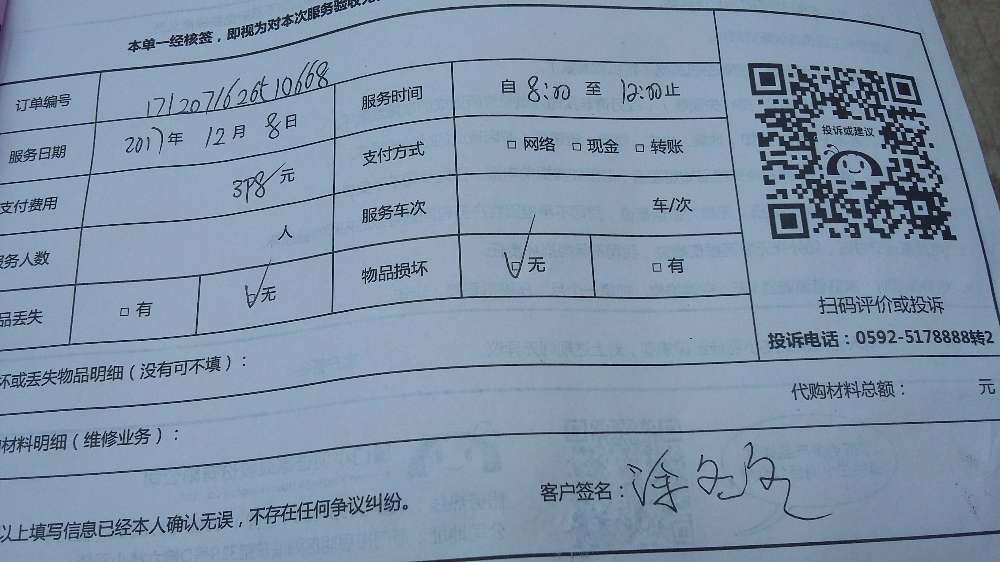 本单一经核签，即视为对本次服务验收
订单编号
服务时间 自 8:00 至 12:00 止
服务日期 2017 年 12 月 8 日
支付方式 □ 网络 □ 现金 □ 转账
支付费用 398 元
服务车次 车/次
服务人数 人
物品损坏 □ 无 □ 有
品丢失 □ 有 □ 无
投诉或建议
扫码评价或投诉
投诉电话：0592-5178888转2
坏或丢失物品明细（没有可不填）：
代购材料总额： 元
材料明细（维修业务）：
以上填写信息已经本人确认无误，不存在任何争议纠纷。
客户签名：